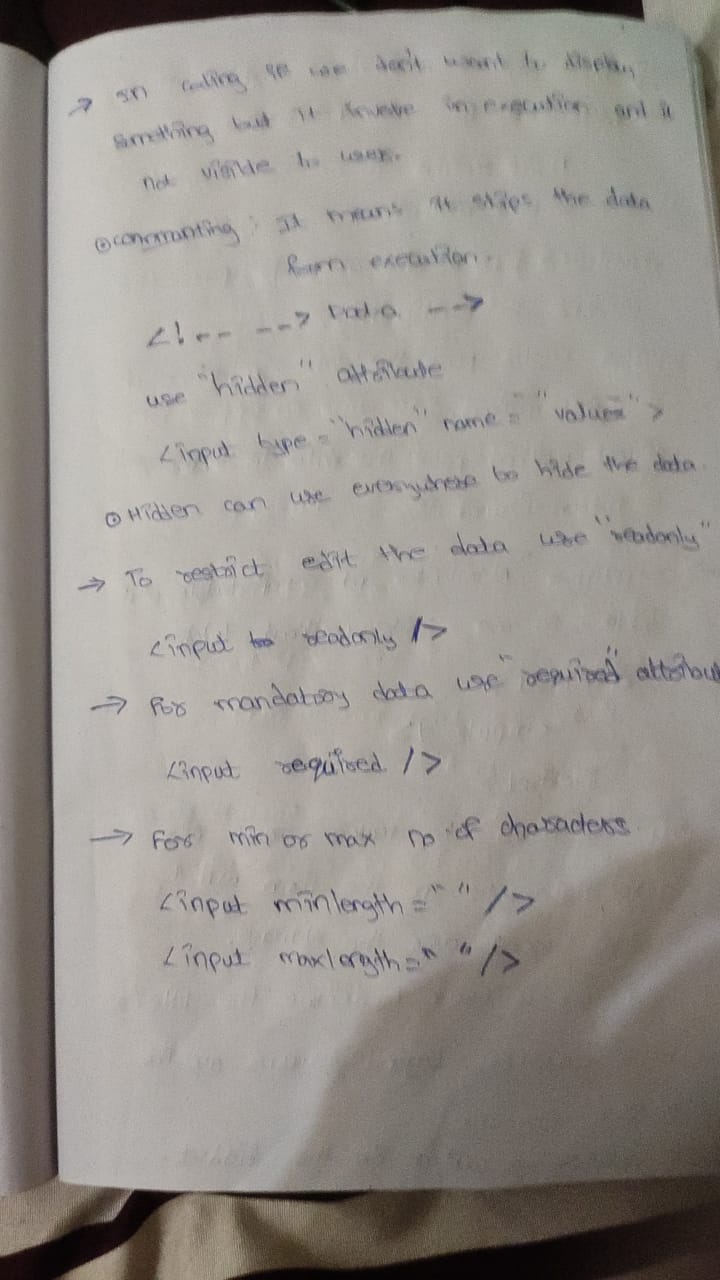 → In coding if we don't want to display
something but it involve in execution and it
not visible to user.
⊙ commanting : It means it stops the data
from execution.
<!-- --> Data -->
use "hidden" attribute
<input type = "hidden" name = "values" >
⊙ Hidden can use everywhere to hide the data.
→ To restrict edit the data use "readonly"
<input readonly />
→ For mandatory data use "required" attribut
<input required />
→ For min or max no of characters
<input minlength = " " />
<input maxlength = " " />